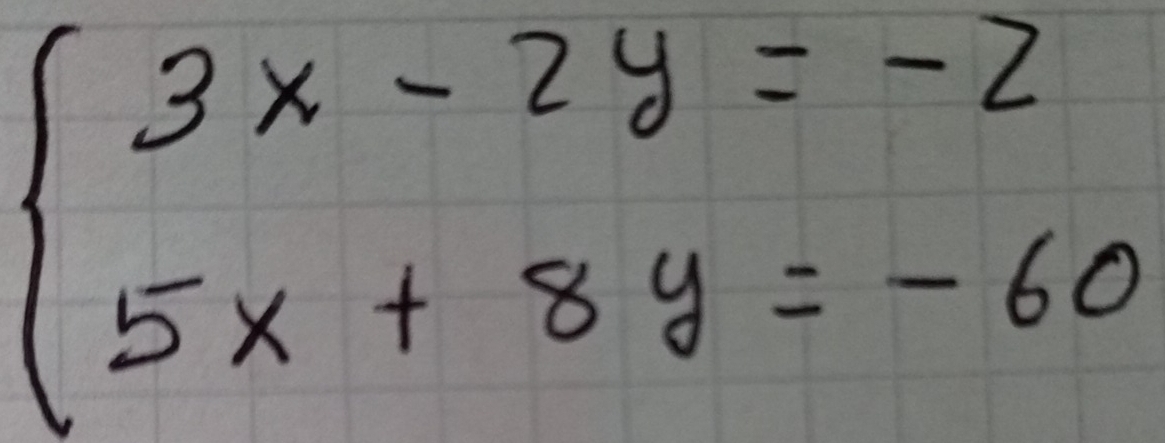 3x - 2y = -2
5x + 8y = -60